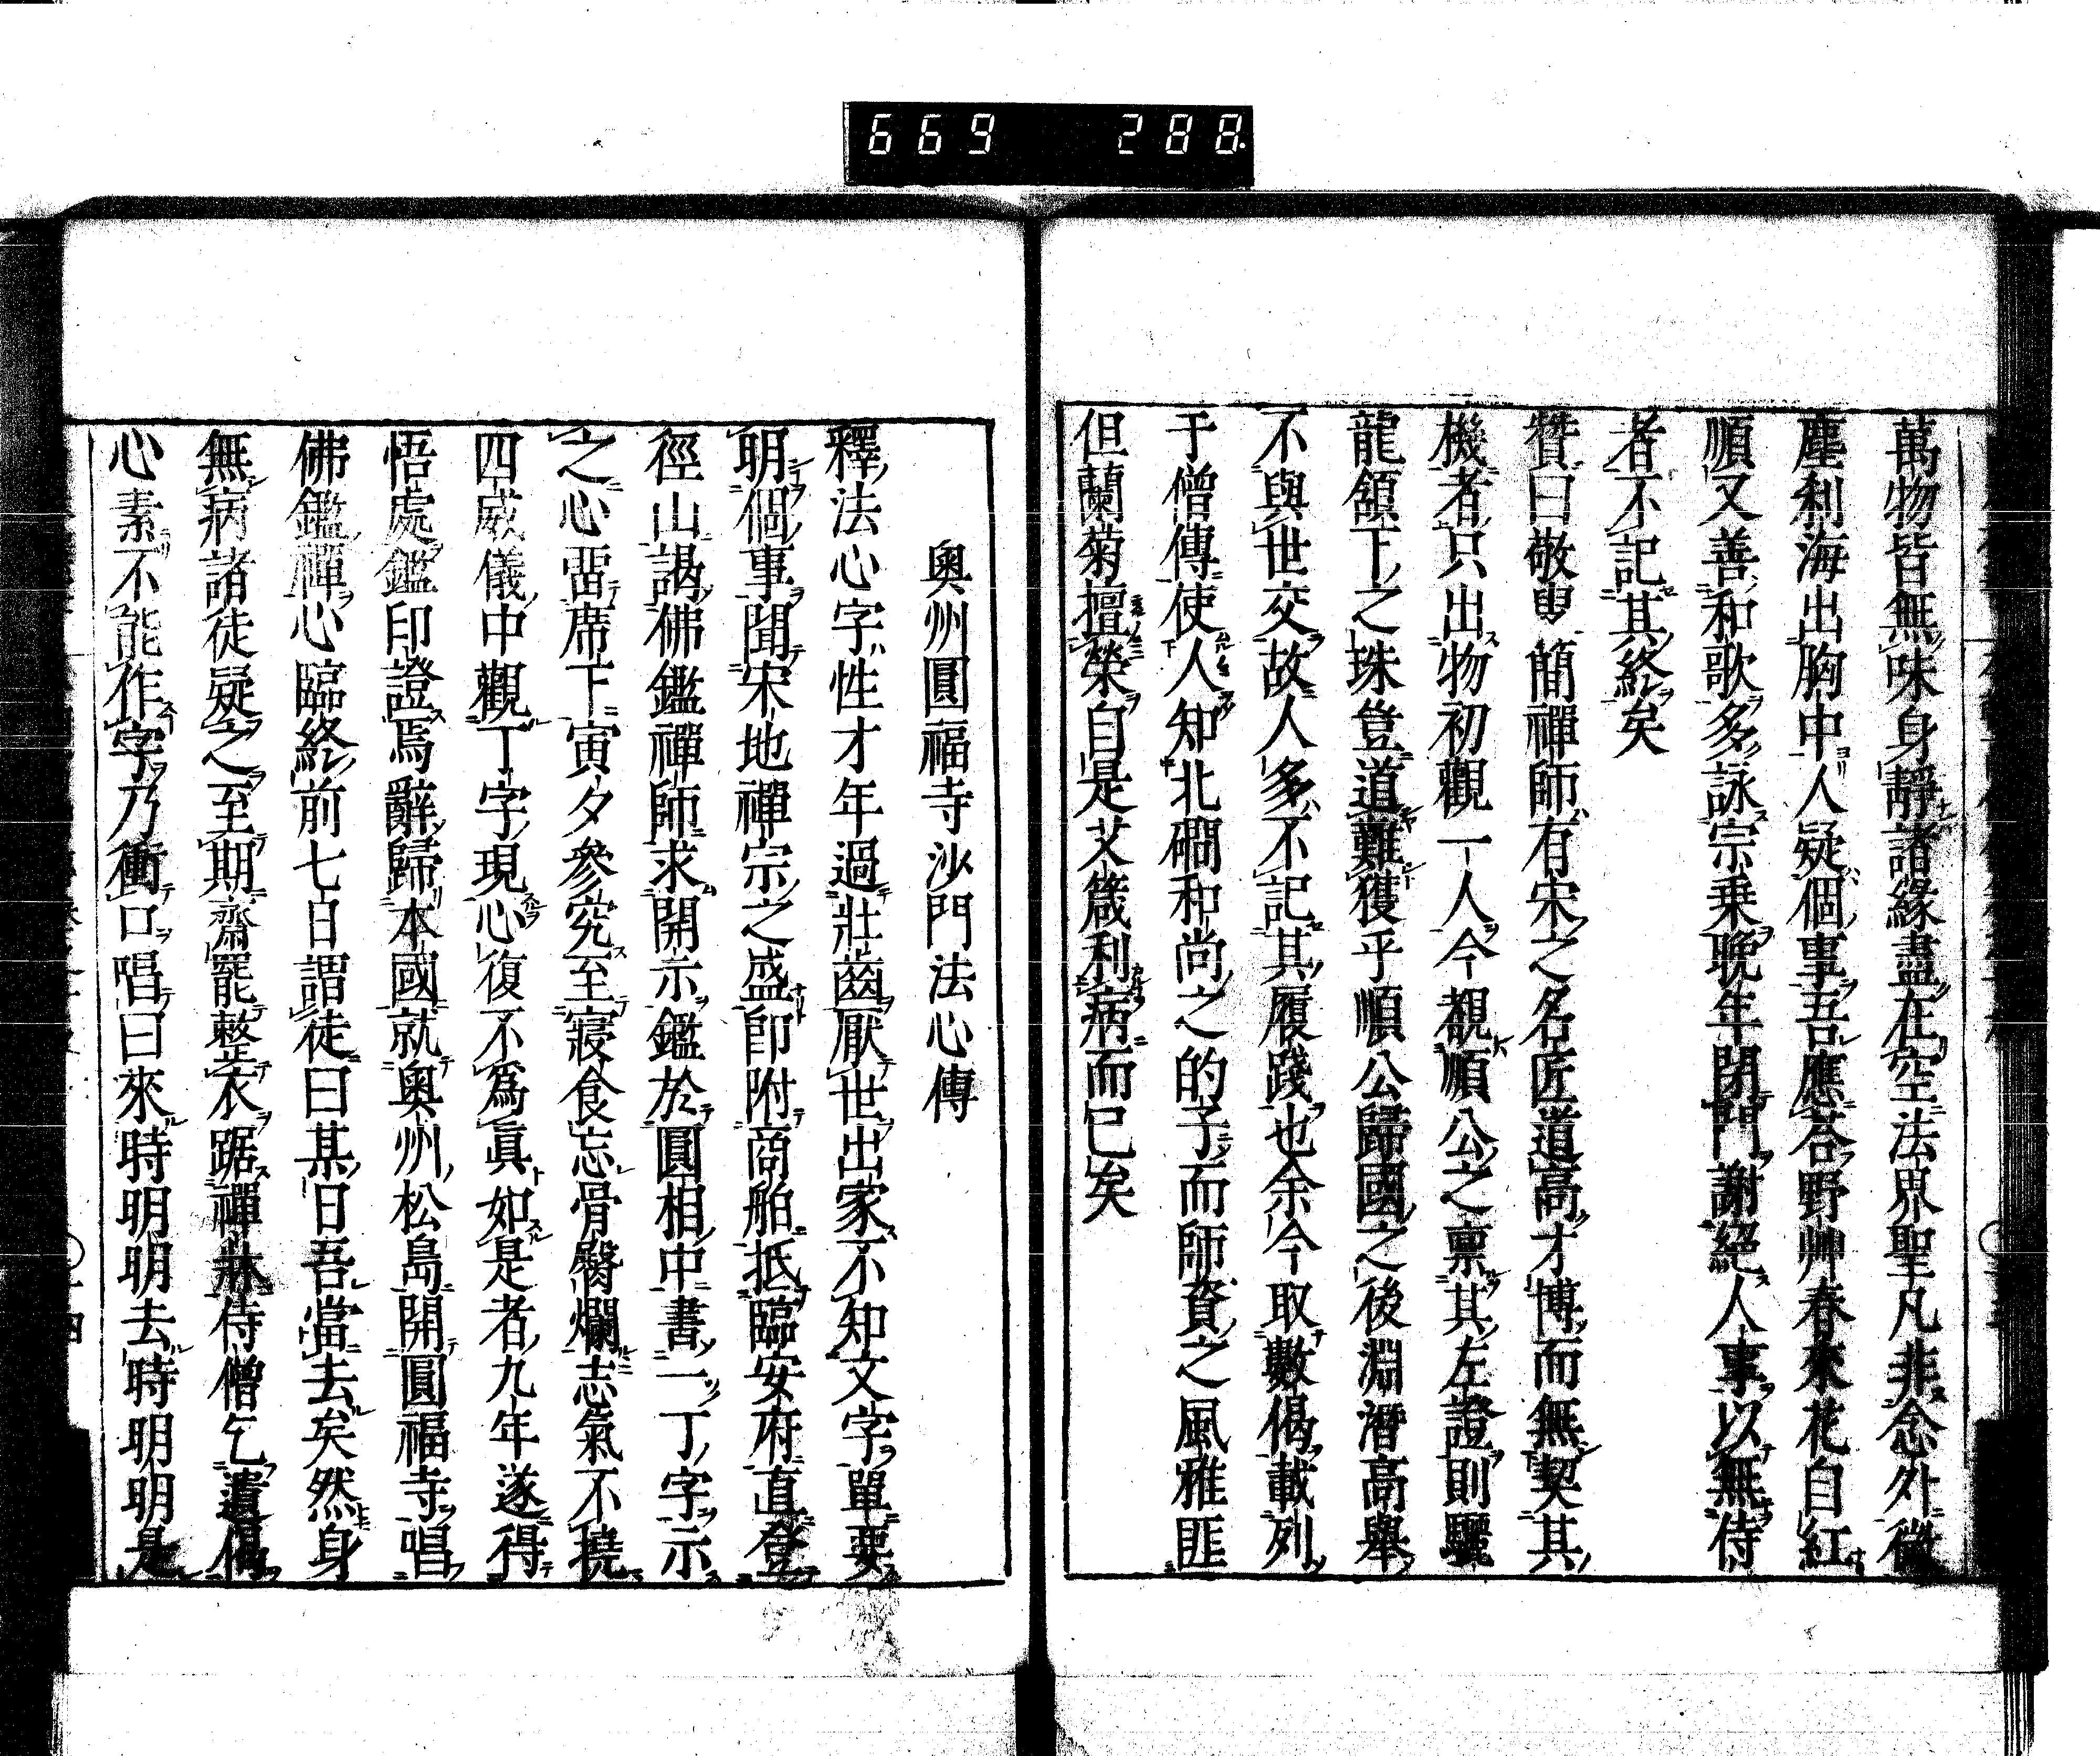 669 288
萬物皆無味身靜諸緣盡在空法界聖凡非念外微
塵刹海出胸中人疑個事吾應荅野艸春來花自紅
順又善和歌多詠宗乗晚年閉門謝絕人事以無侍
者不記其終矣
贊曰敬叟簡禪師有宋之名匠道高才博而無契其
機者只出物初觀一人今覩順公之禀其左證則驪
龍頷下之珠豈道難獲乎順公歸國之後淵潛高舉
不與世交故人多不記其履踐也余今取數偈載列
于僧傳使人知北磵和尚之的子而師資之風雅匪
但蘭菊擅榮自是艾箴利病而已矣
奧州圓福寺沙門法心傳
釋法心字性才年過壯齒厭世出家不知文字單要
明個事聞宋地禪宗之盛卽附商舶抵臨安府直登
徑山謁佛鑑禪師求開示鑑於圓相中書一丁字示
之心畱席下寅夕參究至寢食忘骨臀爛志氣不撓
四威儀中觀丁字現心復不爲眞如是者九年遂得
悟處鑑印證焉辭歸本國就奧州松島開圓福寺唱
佛鑑禪心臨終前七日謂徒曰某日吾當去矣然身
無病諸徒疑之至期齋罷整衣踞禪牀侍僧乞遺偈
心素不能作字乃衝口唱曰來時明明去時明明是